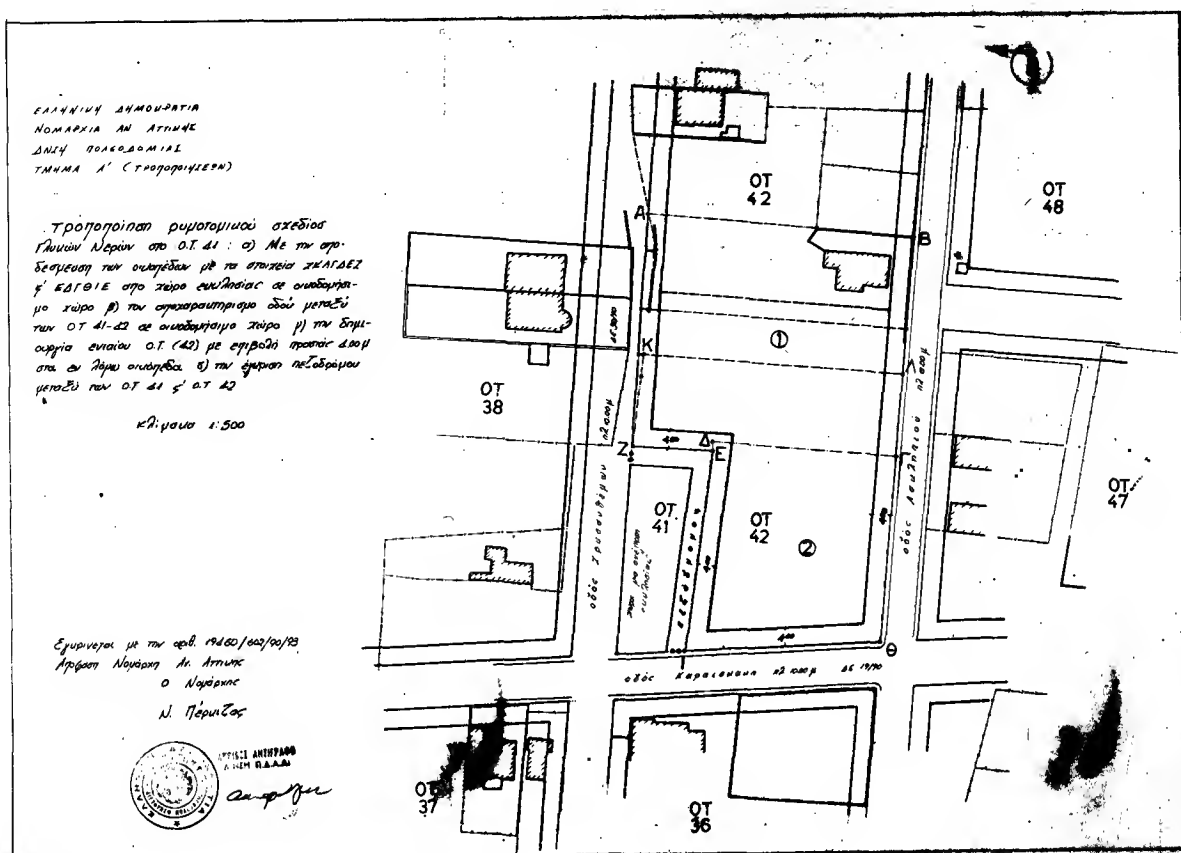 ΕΛΛΗΝΙΚΗ ΔΗΜΟΚΡΑΤΙΑ
ΝΟΜΑΡΧΙΑ ΑΝ ΑΤΤΙΚΗΣ
ΔΝΣΗ ΠΟΛΕΟΔΟΜΙΑΣ
ΤΜΗΜΑ Α' (ΤΡΟΠΟΠΟΙΗΣΕΩΝ)
Τροποποίηση ρυμοτομικού σχεδίου
Γλυκών Νερών στο Ο.Τ. 41 : α) Με την απο-
δέσμευση των οικοπέδων με τα στοιχεία ΖΚΑΓΔΕΖ
ς' ΕΔΓΘΙΕ απο χώρο εκκλησίας σε οικοδομήσι-
μο χώρο β) τον αποχαρακτηρισμο οδού μεταξύ
των ΟΤ 41-42 σε οικοδομήσιμο χώρο γ) την δημι-
ουργία ενιαίου Ο.Τ. (42) με επιβολή πρασιάς 4.00μ
στα εν λόγω οικόπεδα δ) την έγκριση πεζοδρόμου
μεταξύ των ΟΤ 41 ς' ΟΤ 42
κλίμακα 1:500
Εγκρίνεται με την αριθ. 19460/602/90/93
Απόφαση Νομάρχη Αν. Αττικής
Ο Νομάρχης
Ν. Πέρκιζας
ΟΤ
42
ΟΤ
48
Α
Β
Κ
①
ΟΤ
38
Ζ
4.00
Δ
Ε
ΟΤ
41
ΟΤ
42
②
4.00
4.00
4.00
πεζόδρομος
χώρος για ανέγερση
εκκλησίας
οδός Χρυσανθέμων
πλ 10.00μ
οδός Ασκληπιού
πλ 10.00μ
ΟΤ
47
Θ
οδός Καραισκακη πλ 10.00μ ΔΕ 19/90
ΟΤ
37
ΟΤ
36